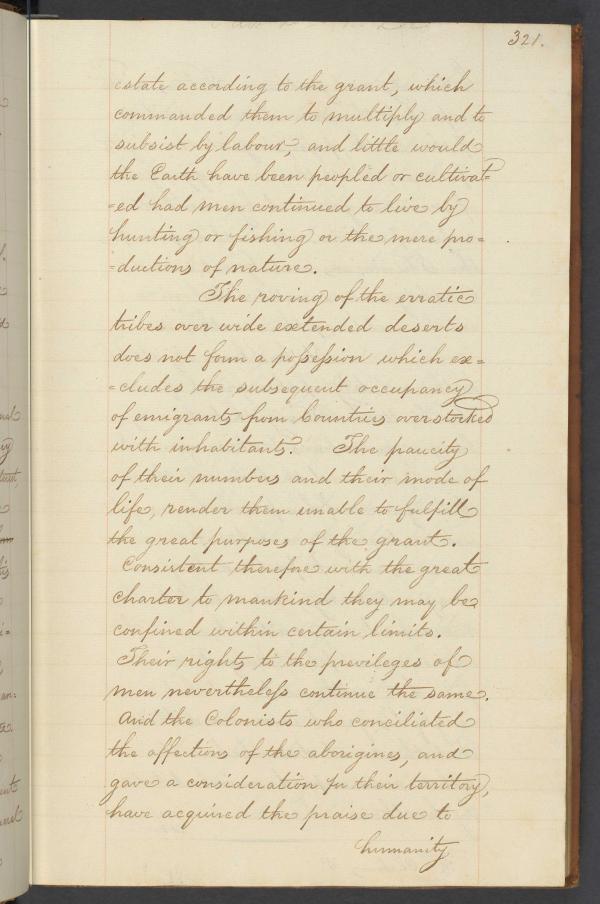 321.
estate according to the grant, which
commanded them to multiply and to
subsist by labour, and little would
the Earth have been peopled or cultivat=
=ed had men continued to live by
hunting or fishing or the mere pro=
=ductions of nature.
The roving of the erratic
tribes over wide extended deserts
does not form a possession which ex=
=cludes the subsequent occupancy
of emigrants from Countries overstocked
with inhabitants? The paucity
of their numbers and their mode of
life, render them unable to fulfill
the great purposes of the grant.
Consistent therefore with the great
charter to mankind they may be
confined within certain limits.
Their rights to the previleges of
men nevertheless continue the same.
And the Colonists who conciliated
the affections of the aborigines, and
gave a consideration for their territory,
have acquired the praise due to
humanity